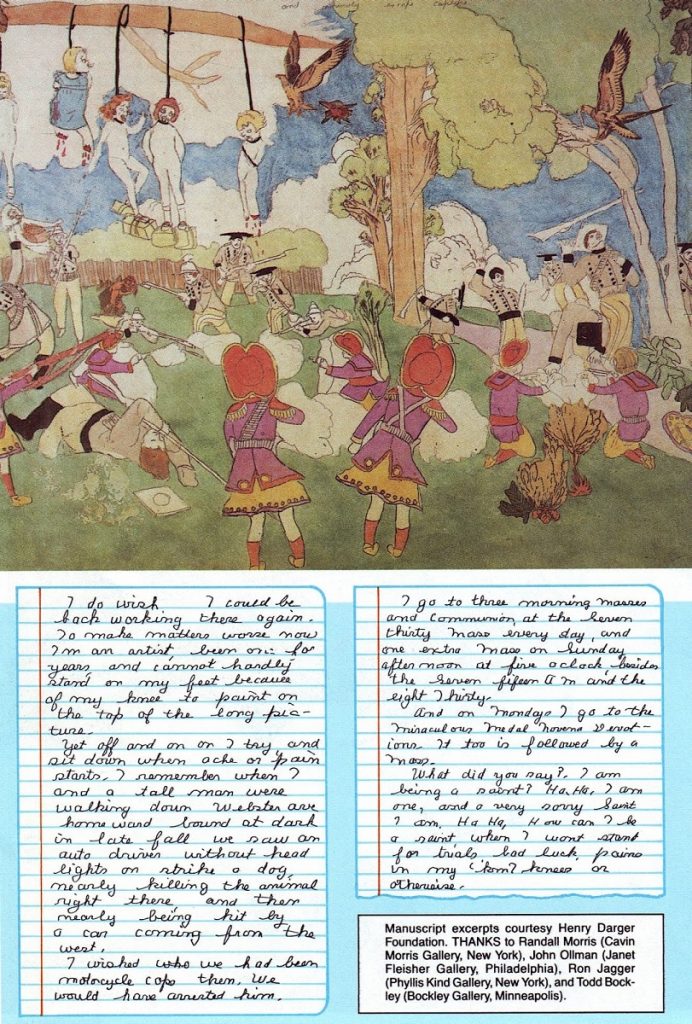 and
I do wish I could be
back working there again.
To make matters worse now
I'm an artist, been one for
years and cannot hardly
stand on my feet because
of my knee to paint on
the top of the long pic-
ture.
Yet off and on or I try, and
sit down when ache or pain
starts. I remember when I
and a tall man were
walking down Webster ave
homeward bound at dark
in late fall we saw an
auto driver without head
lights on strike a dog,
nearly killing the animal
right there and then
nearly being hit by
a car coming from the
west.
I wished who we had been
motorcycle cops then. We
would have arrested him.
I go to three morning masses
and Communion at the seven
thirty mass every day, and
one extra mass on Sunday
afternoon at five oclock besides
the seven fifteen A m and the
eight thirty.
And on mondays I go to the
miraculous medal novena devot-
ions. It too is followed by a
mass.
What did you say?. I am
being a saint? Ha, Ha, I am
one, and a very sorry saint
I am. Ha Ha, How can I be
a saint when I wont stand
for trials bad luck, pains
in my knees or
otherwise.
Manuscript excerpts courtesy Henry Darger
Foundation. THANKS to Randall Morris (Cavin
Morris Gallery, New York), John Ollman (Janet
Fleisher Gallery, Philadelphia), Ron Jagger
(Phyllis Kind Gallery, New York), and Todd Bock-
ley (Bockley Gallery, Minneapolis).